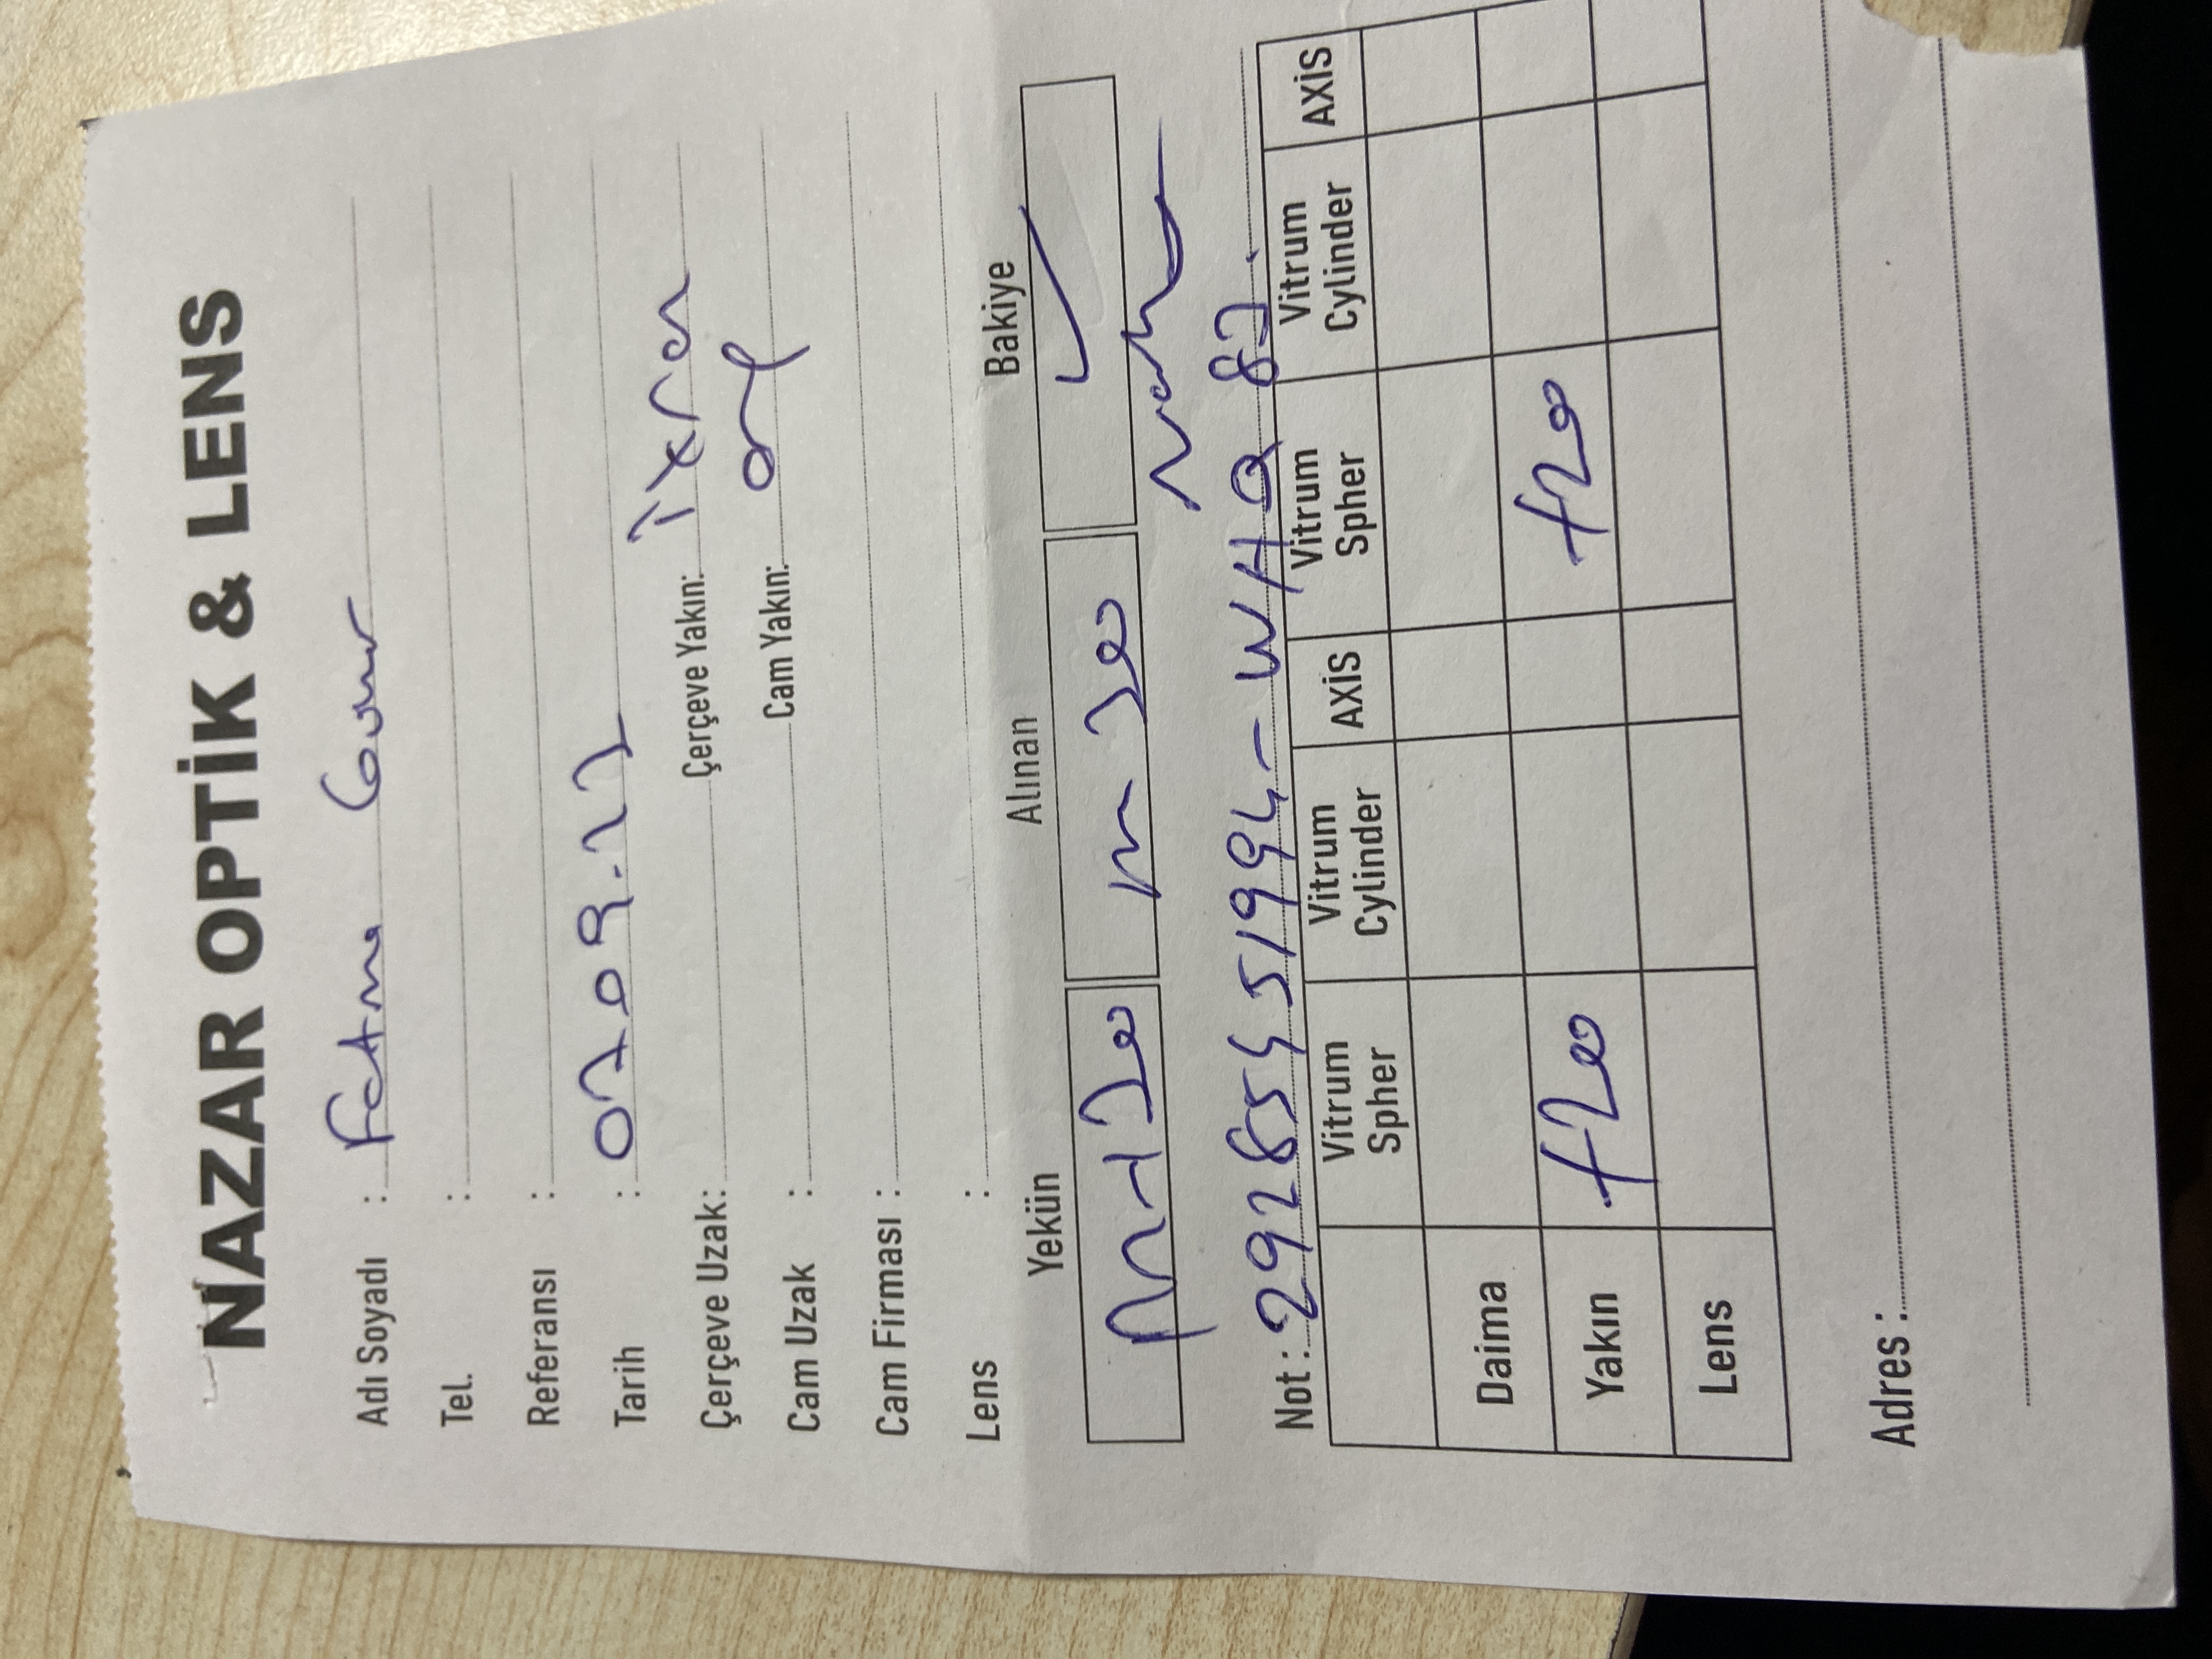 NAZAR OPTİK & LENS
Adı Soyadı : Fatma
Tel. :
Referansı :
Tarih : 07 09.22
Çerçeve Uzak: Çerçeve Yakın: İkra
Cam Uzak : Cam Yakın: org
Cam Firması :
Lens :
Yekün Alınan Bakiye
Not : WHQ
Vitrum Spher Vitrum Cylinder AXİS Vitrum Spher Vitrum Cylinder AXİS
Daima
Yakın +200 +200
Lens
Adres :